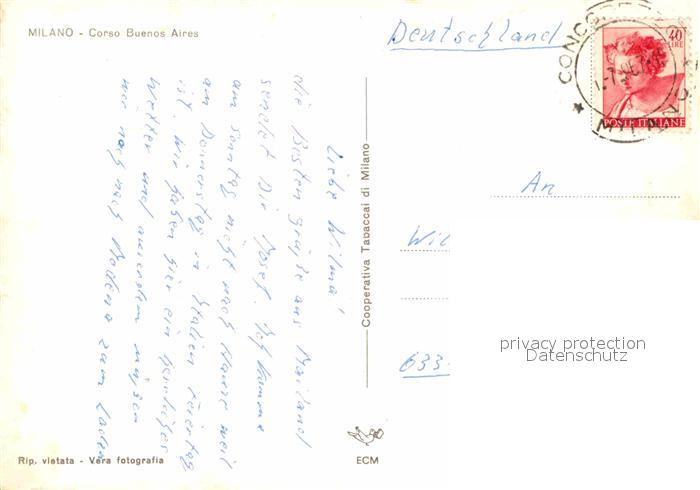 MILANO - Corso Buenos Aires
Liebe Wilma!
die Besten Grüße aus Mailand
sendet Dir Josef. Ich komme
am Sonntag nicht nach Hause weil
am Donnerstag in Italien Feiertag
ist. Wir haben hier ein herrliches
Wetter und außerdem müssen
wir noch nach Modena zum Laden
Rip. vietata - Vera fotografia
Cooperativa Tabaccai di Milano
ECM
Deutschland
40
LIRE
POSTE ITALIANE
MILANO
An
Wil
633
privacy protection
Datenschutz